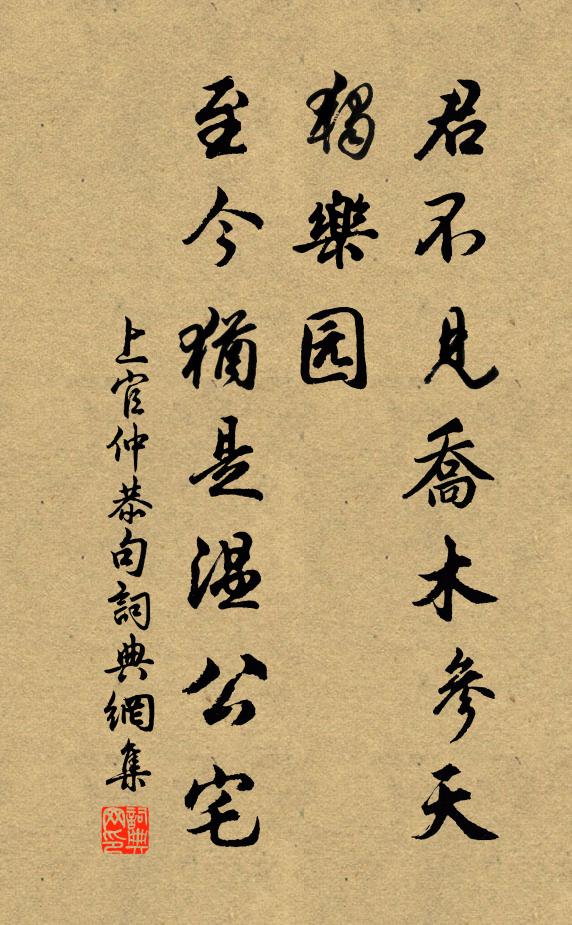 君不見喬木參天
獨樂园
至今猶是温公宅
上官仲恭句詞典網集
詞典网印